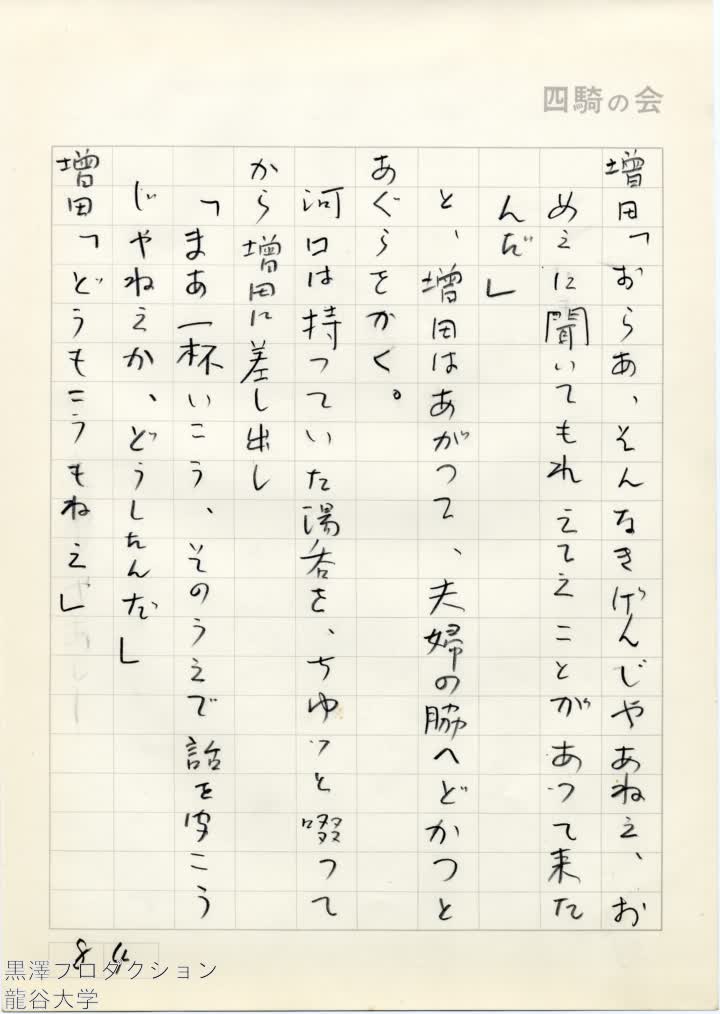 四騎の会
増田「おらあ、そんなきげんじやあねえ、お
めえに聞いてもれえてえことがあつて来た
んだ」
と、増田はあがつて、夫婦の脇へどかつと
あぐらをかく。
河口は持つていた湯呑を、ちゆッと啜つて
から増田に差し出し
「まあ一杯いこう、そのうえで話を聞こう
じやねえか、どうしたんだ」
増田「どうもこうもねえ」
黒澤プロダクション
龍谷大学